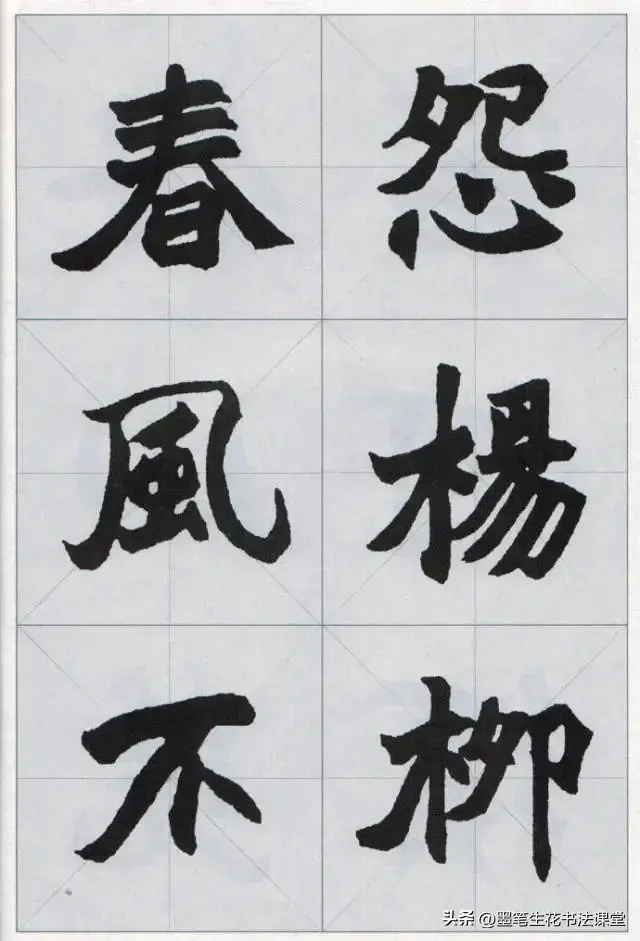 怨楊柳
春風不
头条 @墨笔生花书法课堂